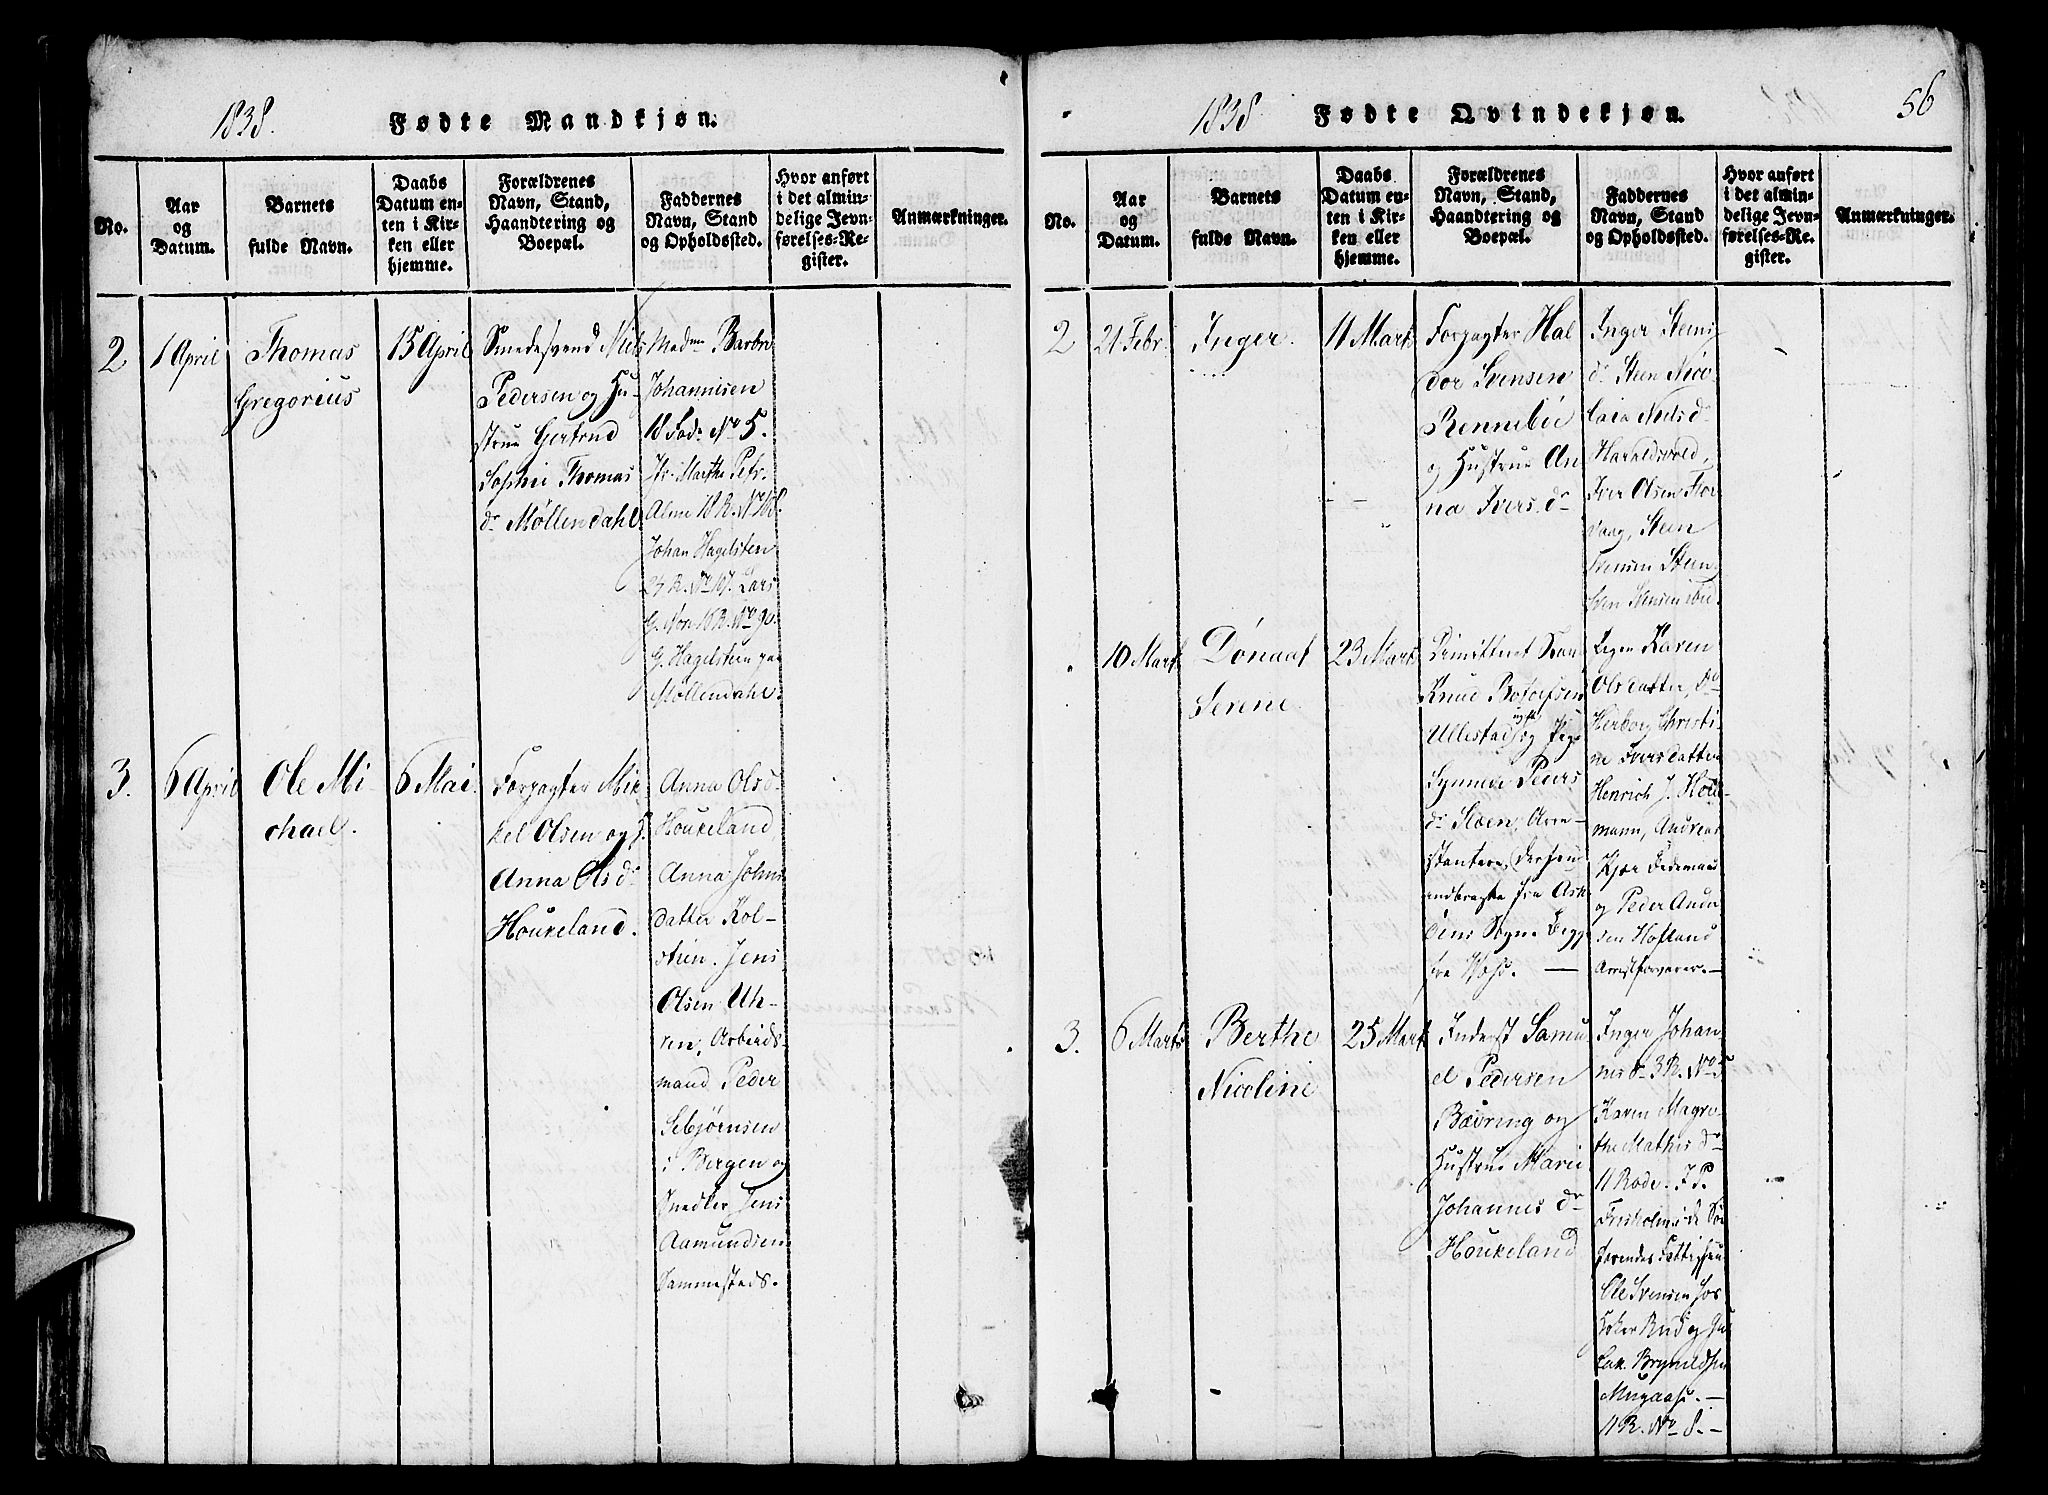 1838.
Fødte Mandkjøn.
No.
Aar
og
Datum.
Barnets
fulde Navn.
Daabs
Datum en-
ten i Kir-
ken eller
hjemme.
Forældrenes
Navn, Stand,
Haandtering og
Boepæl.
Faddernes
Navn, Stand
og Opholdssted.
Hvor anført
i det almin-
delige Jevn-
førelses-Re-
gister.
Anmærkninger.
2
1 April
Thomas
Gregorius
15 April
Smedesvend Niels
Pedersen og Hu-
strue Gertrud
Sophie Thomas
dr Møllendahl.
Madme Barbra
Johannisen
18 Rode No 5.
Martha Petr.
Johan Hagelsteen
23 R. No 107. Lars
18 R. No 90.
G. Hagelsteen paa
Møllendahl.
3.
6 April
Ole Mi-
chael.
6 Mai.
Forpagter Mik-
kel Olsen og H.
Anna Ols dr
Houkeland.
Anna Ols d.
Houkeland
Anna Johns
datter Kol-
stien. Jens
Olsen Uh-
ren, Arbeids-
mand Peder
Sebjørnsen
i Bergen og
Snedker Jens
Aamundsen
sammesteds.
1838
Fødte Qvindekjøn.
56
No.
Aar
og
Datum.
Barnets
fulde Navn.
Daabs
Datum en-
ten i Kir-
ken eller
hjemme.
Forældrenes
Navn, Stand,
Haandtering og
Boepæl.
Faddernes
Navn, Stand
og Opholdssted.
Hvor anført
i det almin-
delige Jevn-
førelses-Re-
gister.
Anmærkninger.
2
21 Febr.
Inger.
11 Marts
Forpagter Hal
dor Svensen
Rennebøe
og Hustrue An
na Ivers dr
Inger Steins
dr Steen Nico-
laia Niels dr
Haraldsvold,
Iver Olsen Flor
vaag, Steen
Svensen Steen
Sven Svensen ibid.
10 Mart
Dønaat
Serene
23 Marts
Dimitteret
Knud
Ullestad og Pige
Synneve Peders
dr Sloen, Arre-
stantere,
fra Ask-
øens Sogn Begge
fra Vos. —
Pigen Karen
Olsdatter, do
Herborg Christi
ne Iversdatter
Henrich J. Holl
mann, Andreas
Kjær
og Peder Ander
sen Hofland
Arrestforvarer. —
3.
6 Marts
Berthe
Nicoline
25 Mart
Inderst Samu
el Pedersen
Bævring og
Hustrue Marie
Johannes dr
Houkeland
Inger Johan
nes d. 3 R. No 5
Karen Magre-
the Mathis dr
11 Rode. J. P.
Friisholm i de Sø
farendes Fattighuus
Ole Svensen hos
Høker Rud og
Brynildsen
11 R. No 8. —